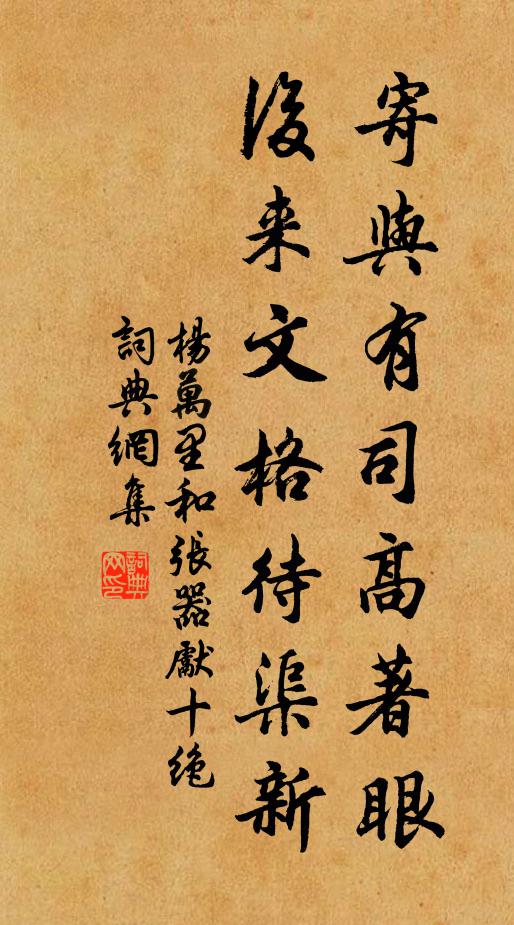 寄與有司高著眼
後来文格待渠新
楊萬里和張器獻十絶
詞典網集
詞典
网印